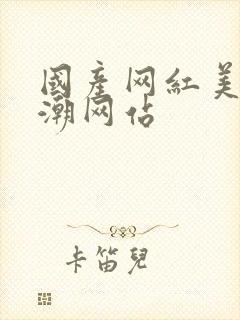 國產网紅美
潮网站
卡笛兒